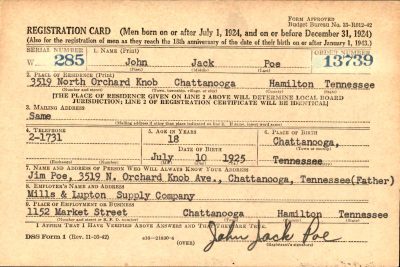 FORM APPROVED
Budget Bureau No. 33-R012-42
REGISTRATION CARD (Men born on or after July 1, 1924, and on or before December 31, 1924)
(Also for the registration of men as they reach the 18th anniversary of the date of their birth on or after January 1, 1943.)
SERIAL NUMBER 1. NAME (Print) ORDER NUMBER
W 285 John Jack Poe 13739
(First) (Middle) (Last)
2. PLACE OF RESIDENCE (Print)
3519 North Orchard Knob Chattanooga Hamilton Tennessee
(Number and street) (Town, township, village, or city) (County) (State)
[THE PLACE OF RESIDENCE GIVEN ON LINE 2 ABOVE WILL DETERMINE LOCAL BOARD
JURISDICTION; LINE 2 OF REGISTRATION CERTIFICATE WILL BE IDENTICAL]
3. MAILING ADDRESS
Same
4. TELEPHONE 5. AGE IN YEARS 6. PLACE OF BIRTH
2-1731 18 Chattanooga,
DATE OF BIRTH
July 10 1925 Tennessee
7. NAME AND ADDRESS OF PERSON WHO WILL ALWAYS KNOW YOUR ADDRESS
Jim Poe, 3519 N. Orchard Knob Ave., Chattanooga, Tennessee(Father)
8. EMPLOYER'S NAME AND ADDRESS
Mills & Lupton Supply Company
9. PLACE OF EMPLOYMENT OR BUSINESS
1152 Market Street Chattanooga Hamilton Tennessee
I AFFIRM THAT I HAVE VERIFIED ABOVE ANSWERS AND THAT THEY ARE TRUE.
DSS Form 1 (Rev. 11-10-42) (OVER) John Jack Poe